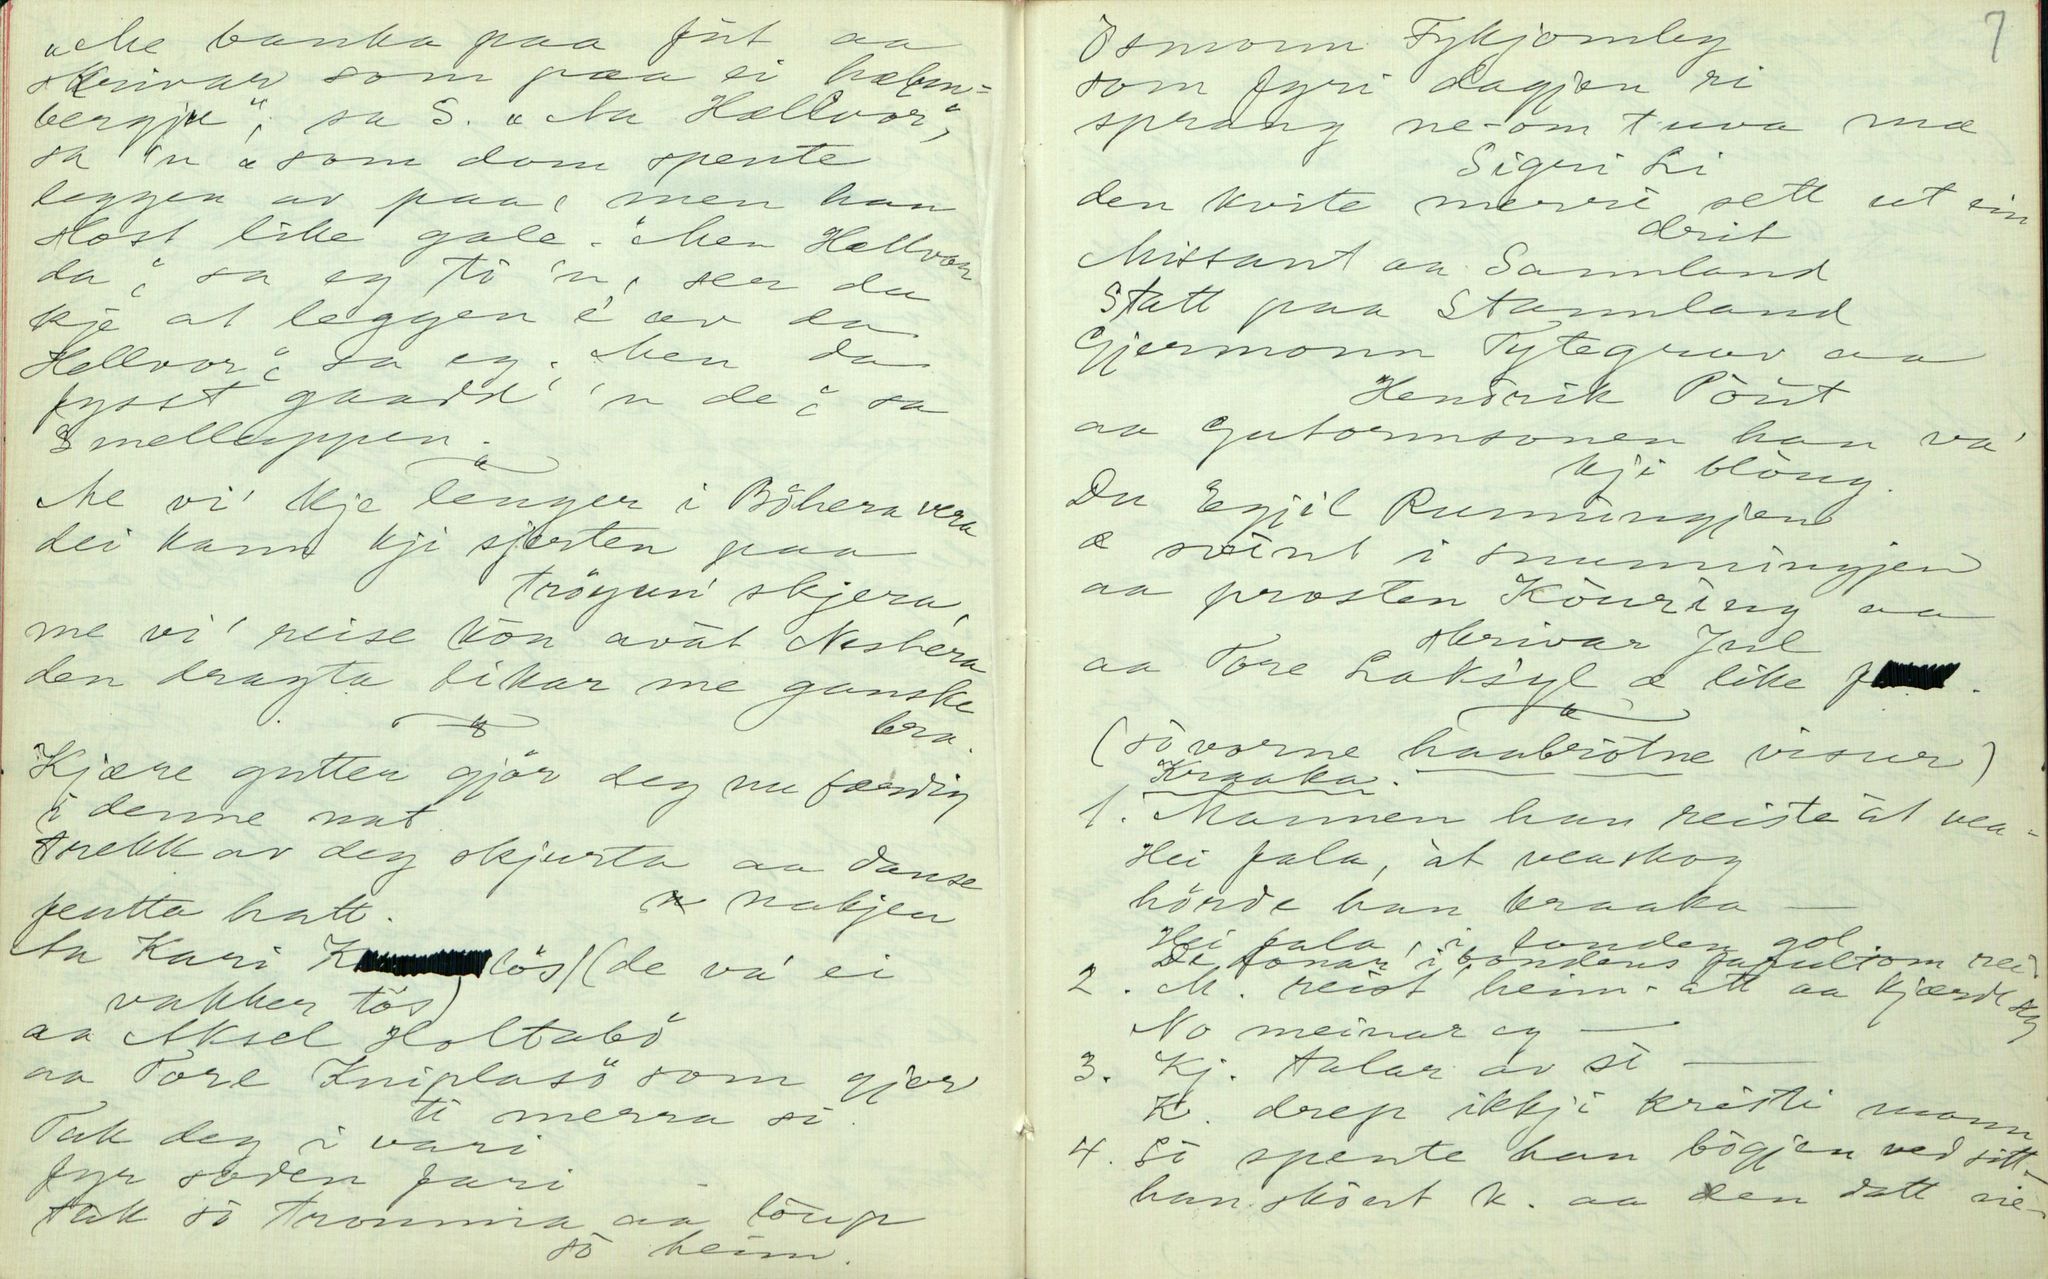 "Me banka paa fut aa
skrivar som paa ei hælm-
bergju", sa S. "Aa Hællvor",
sa 'n "som dom spente
leggen av paa, men han
slost like gale. "Men Hællvor
da", sa eg ti 'n, ser du
kje at leggen e' av da
Hellvor", sa eg. Men da
fysst gaadd' 'n de", sa
Smelluppen.
Me vi' kje lenger i Böhera vera
dei kann kji sjorten paa
tröyun' skjera,
me vi' reise kön avät Nesbera
den dragta likar me ganske
bra.
Kjære gutten gjör deg nu færdig
i denne nat
trekk av deg skjurta aa danse
n nakjen
fentta hatt.
Aa Kari K lös (de va' ei
vakker tös)
aa Aksel Holtabö
aa Tore Kniplasö som gjer
ti merra si.
Tak deg i vari
fyr soden fari
tak so tromma aa löup
so heim.
7
Osmonn Fykjomley
som fyri dagjen ri
sprang ne-om tuva mæ
Sigri Li
den kvite merri sett ut ein
drit
Missant aa Sannland
Statt paa Stannland
Gjermonn Tytegrav aa
Hendrik Pöut
aa Gutormsonen han va'
kji blöug.
Du Egjil Runningjen
æ svint i snunningjen
aa prosten Köuring aa
skrivar Jul
aa Tore Laksyl æ like f .
(sövorne haabrötne visur)
Kraaka.
1. Mannen han reiste åt vea-
Hei fala, åt veaskog
hörde han kraaka —
Hei fala, i londen gol.
De fonar' i bondens fafull om rei
2. M. reist heim-att aa kjærde seg
No meinar eg —
3. Kj. talar av si —
K. drep ikkji kristi mann
4. So spente han bögjen ved sitt-
han sköut K. aa den datt ne-